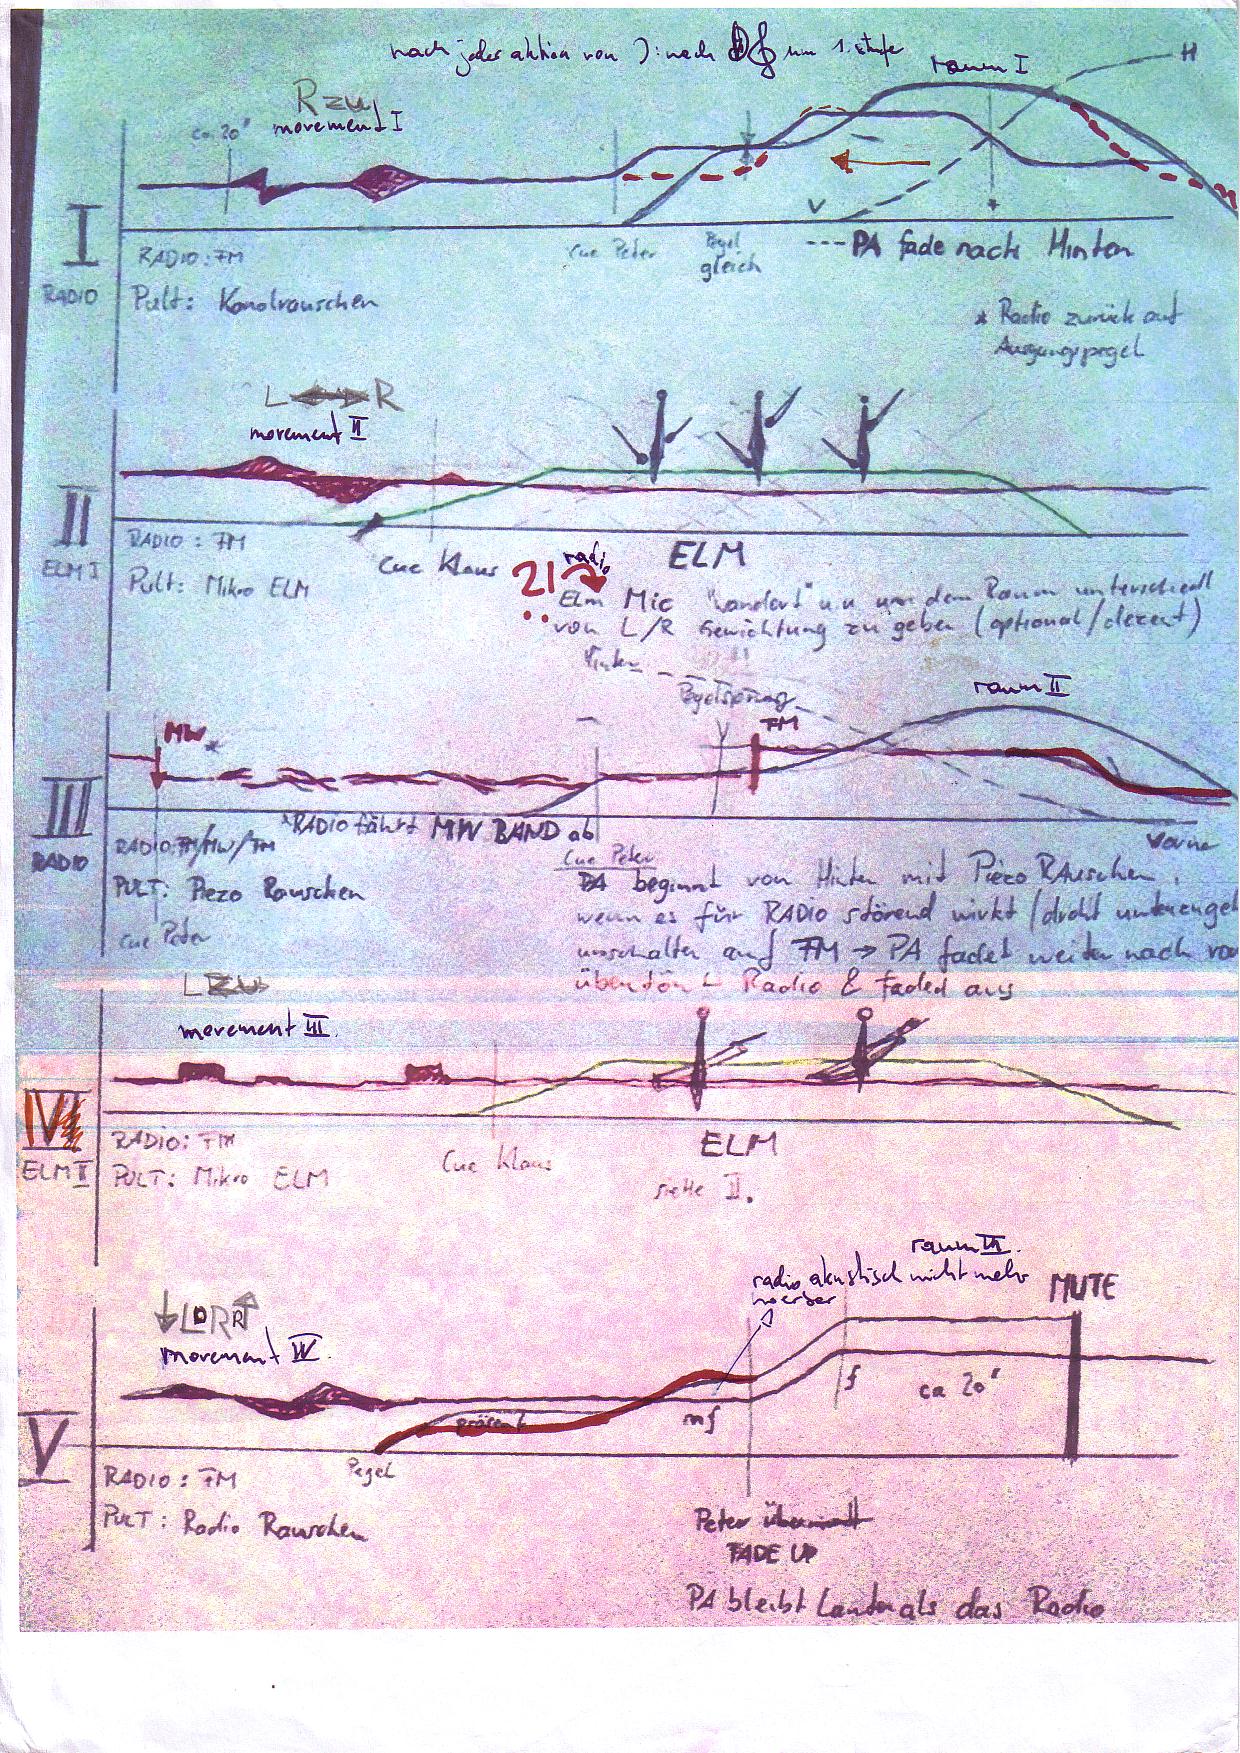 nach jeder aktion von ): nach um 1. stufe
raum I
H
R zu
movement I
ca. 20"
V
I
RADIO
RADIO: FM
Pult: Kanalrauschen
cue Peter
Pegel
gleich
--- PA fade nach Hinten
* Radio zurück auf
Ausgangspegel
L R
movement II
II
ELM I
RADIO : FM
Pult: Mikro ELM
cue Klaus
ELM
radio
?!
Elm Mic "wandert" u.u um dem Raum unterschiedl
von L/R Gewichtung zu geben (optional/dezent)
Hinten
Pegelsprung
raum II
MW *
FM
III
RADIO
*RADIO fährt MW BAND ab
RADIO: FM/MW/FM
PULT: Piezo Rauschen
cue Peter
Vorne
cue Peter
PA beginnt von Hinten mit Piezo RAuschen,
wenn es für RADIO störend wirkt/droht
umschalten auf FM → PA fadet weiter nach vo
übertönt Radio & Faded aus
L zu
movement III.
IV
ELM II
RADIO: FM
PULT: Mikro ELM
Cue Klaus
ELM
siehe II.
raum III.
radio akustisch nicht mehr
hoerbar
MUTE
L R
movement IV.
V
präsent
mf
f
ca 20"
Pegel
RADIO : FM
PULT : Radio Rauschen
Peter
FADE UP
PA bleibt Lauter als das Radio